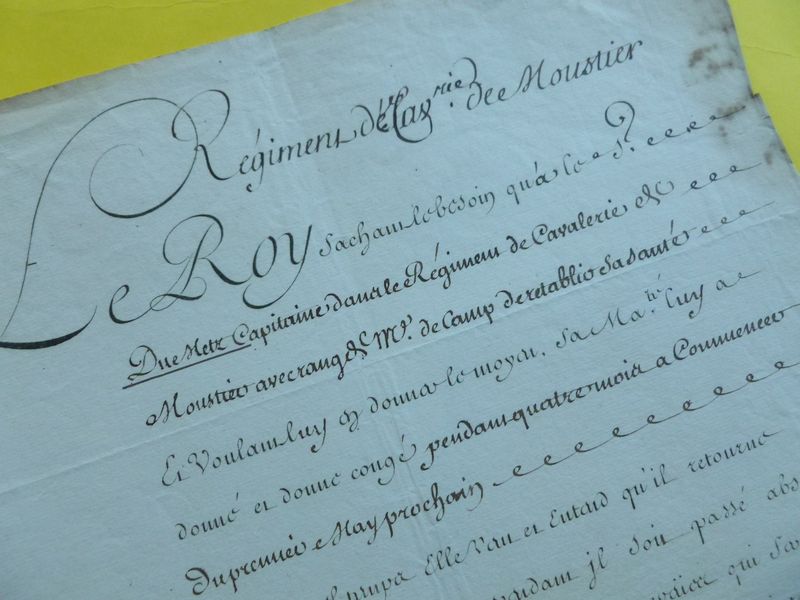 Régiment de Cavrie. de Moustier
Le Roy sachant le besoin qu'a le s.r
Du Metz Capitaine dans le Régiment de Cavalerie de
Moustier avec rang de M.e de Camp de retablir sa santé
Et Voulant luy en donner le moyen, Sa Ma.té luy a
donné et donne congé pendant quatre mois a Commencer
du premier May prochain
Elle Veut et Entend qu'il retourne
jl soit passé abs
qui sa